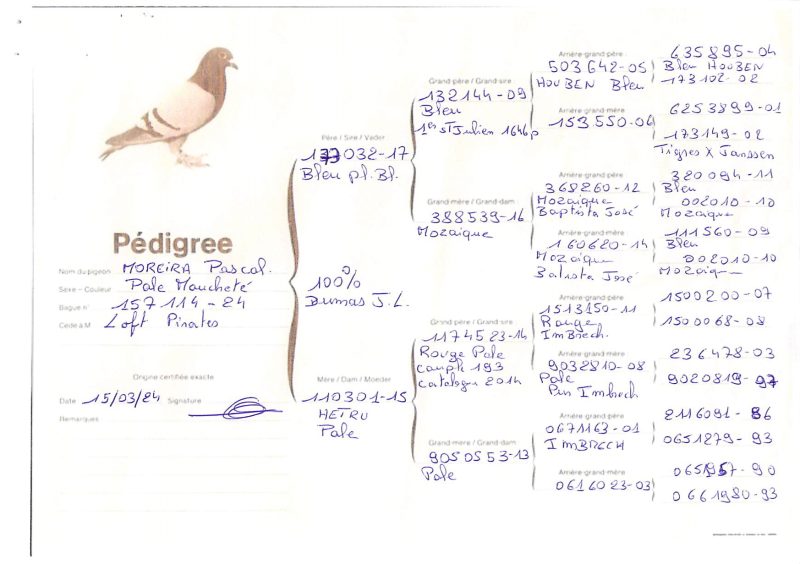 Pédigree
Nom du pigeon MOREIRA Pascal.
Sexe - Couleur Pale Maucheté
Bague n° 157114-24
Cédé à M Loft Pirates
Origine certifiée exacte
Date 15/03/24 Signature
Remarques
Père / Sire / Vader
032-17
Bleu pl. Bl.
100%
Dumas J.L.
Mère / Dam / Moeder
110301-15
HETRU
Pale
Grand-père / Grand-sire
132144-09
Bleu
1er St Julien 1646p
Grand-mère / Grand-dam
388539-16
Mozaique
Grand-père / Grand-sire
1174523-14
Rouge Pale
couple 193
catalogue 2014
Grand-mère / Grand-dam
9050553-13
Pale
Arrière-grand-père
503642-05
HOUBEN Bleu
Arrière-grand-mère
153550-04
Arrière-grand-père
368260-12
Mozaique
Baptista José
Arrière-grand-mère
160620-14
Mozaique
Batista José
Arrière-grand-père
1513150-11
Rouge
ImBrech.
Arrière-grand-mère
9032810-08
Pale
Pur Imbrech
Arrière-grand-père
0671163-01
IMBRECH
Arrière-grand-mère
0616023-03
635895-04
Bleu HOUBEN
173102-02
6253899-01
173149-02
Tigres X Janssen
320094-11
Bleu
002010-10
Mozaique
111560-09
Bleu
002010-10
Mozaique
1500200-07
1500068-08
236478-03
9020819-97
2116091-86
0651279-93
0661980-93